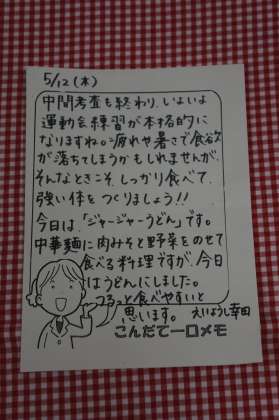 5/12 (木)
中間考査も終わり、いよいよ
運動会練習が本格的に
なりますね。疲れや暑さで食欲
が落ちてしまうかもしれませんが、
そんなときこそ、しっかり食べて、
強い体をつくりましょう!!
今日は「ジャージャーうどん」です。
中華麺に肉みそと野菜をのせて
食べる料理ですが、今日
はうどんにしました。
つるっと食べやすいと
思います。 えいようし幸田
こんだて一口メモ